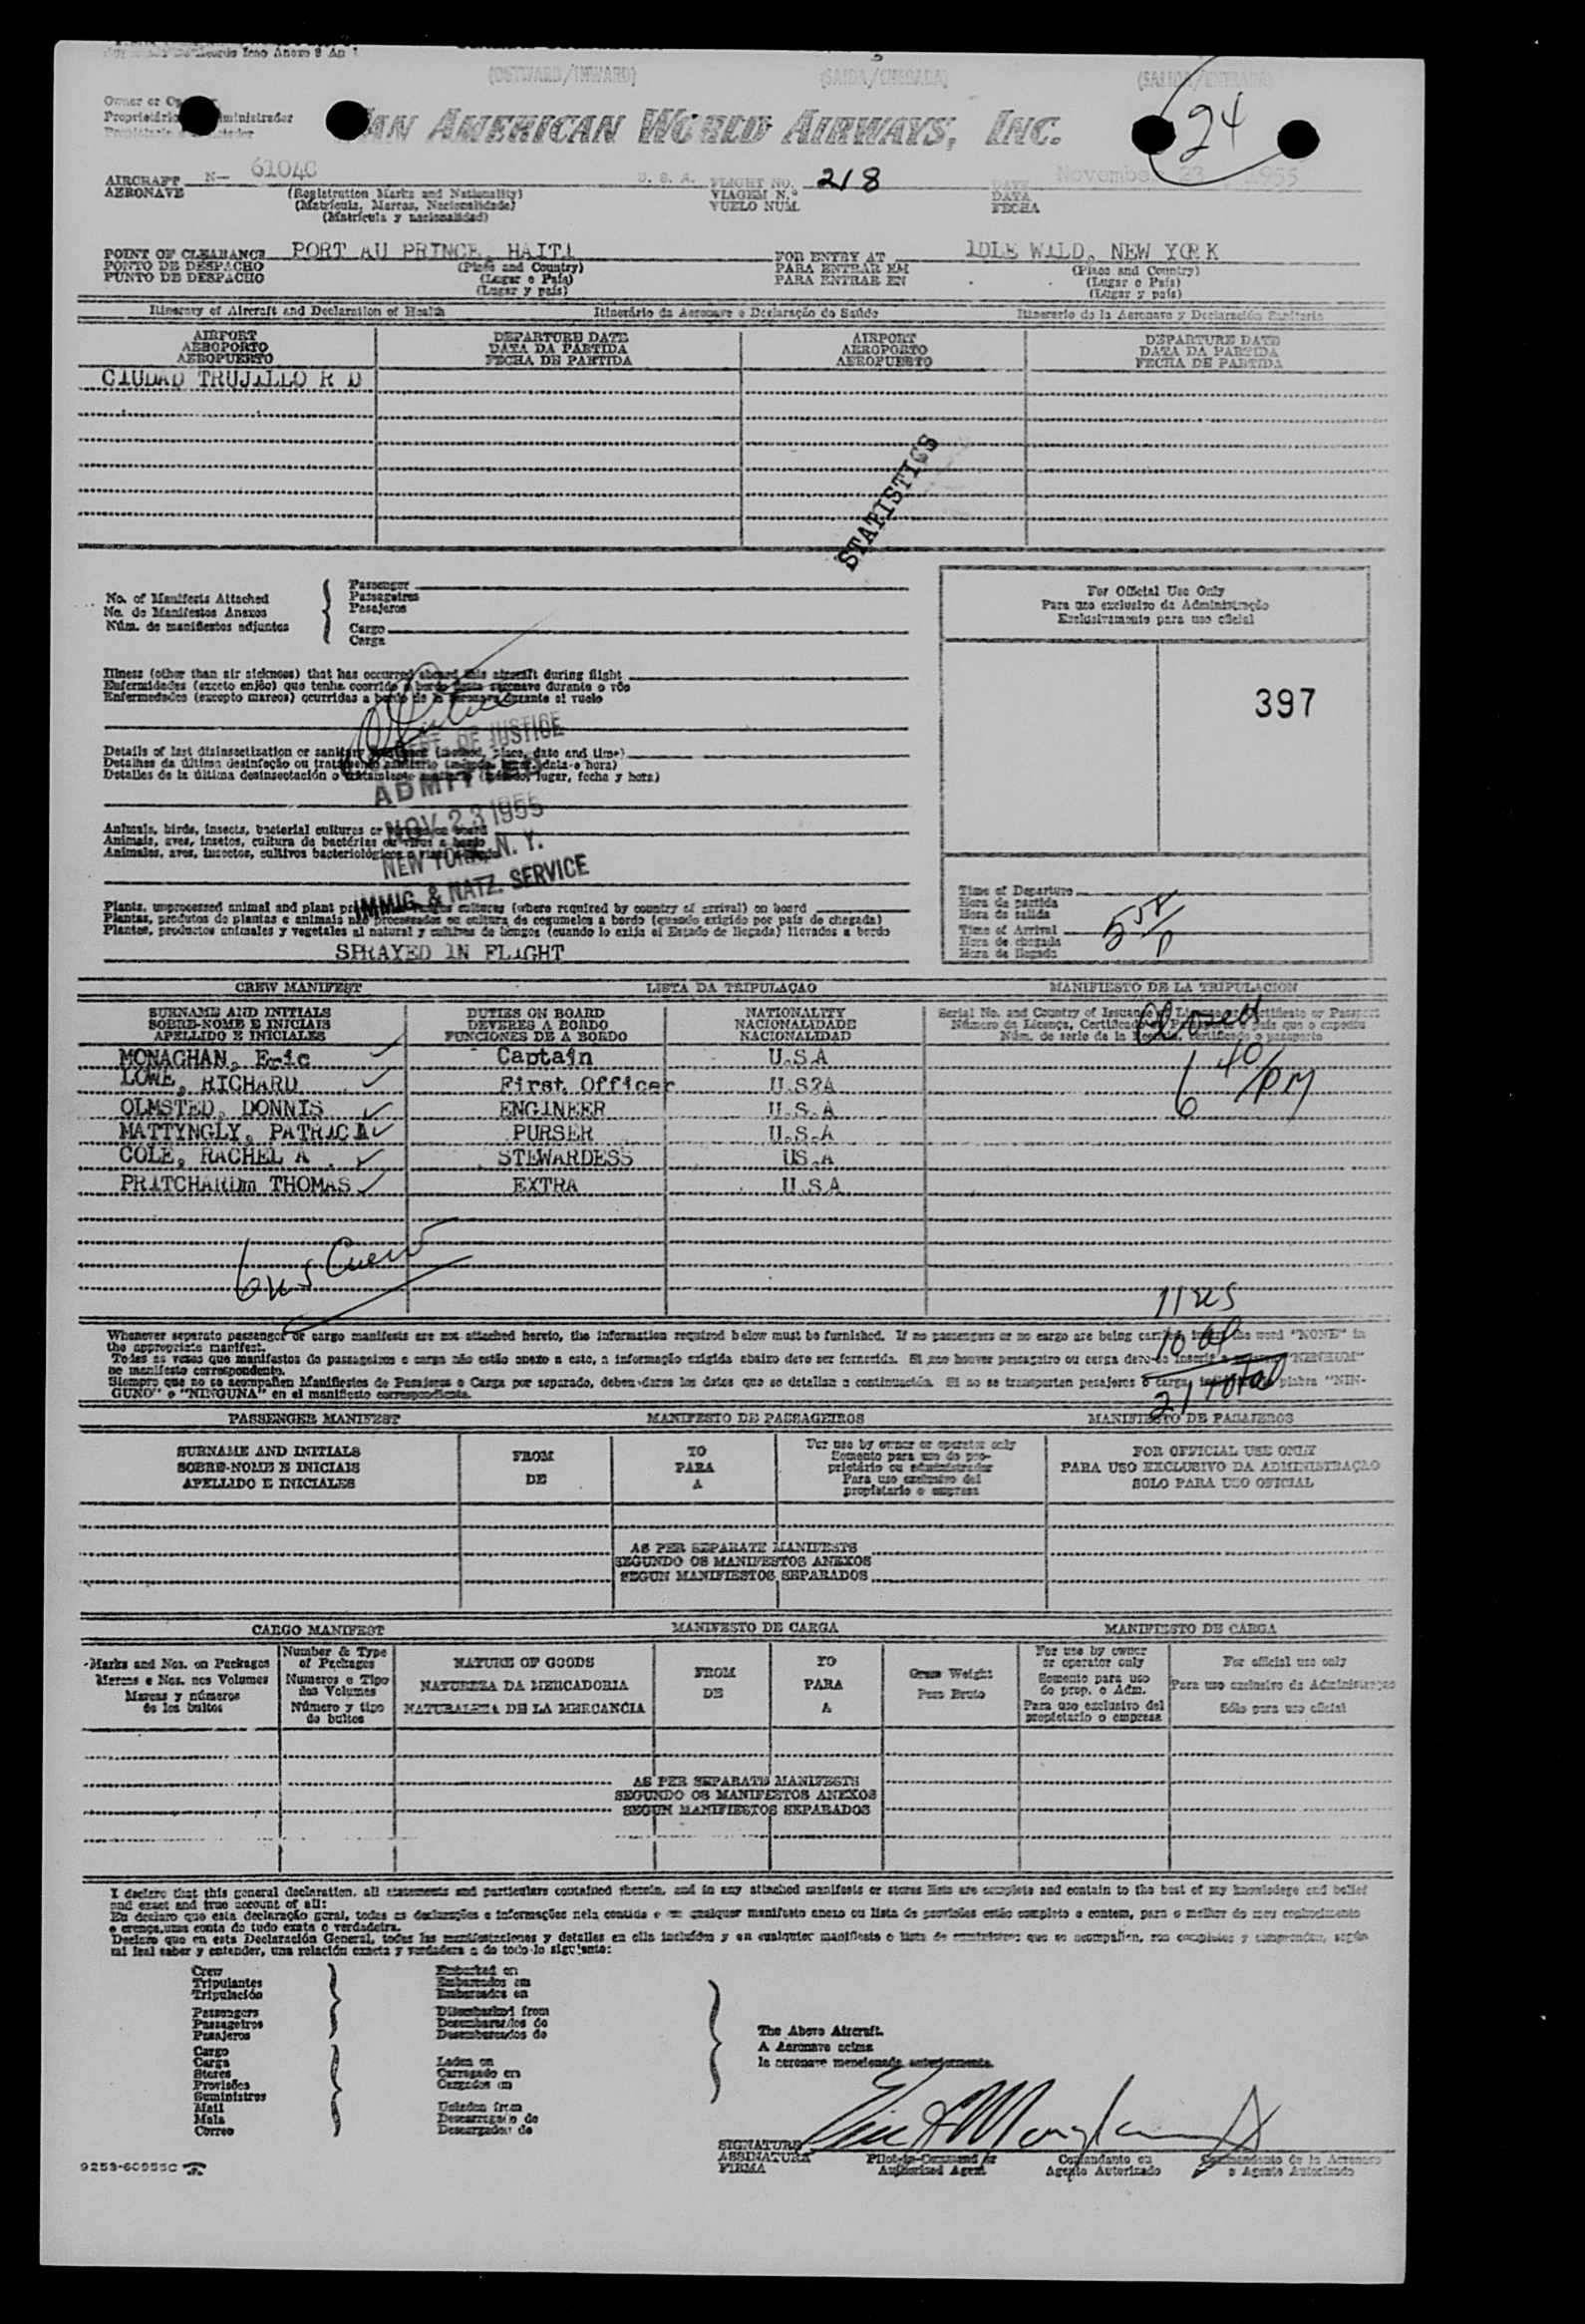 (OUTWARD/INWARD) (SAIDA/CHEGADA) (SALIDA/ENTRADA)
24
Owner or
Proprietário
AN AMERICAN WORLD AIRWAYS, INC.
AIRCRAFT N- 6104C U. S. A. FLIGHT NO. 218 DATE November 23 1955
AERONAVE (Registration Marks and Nationality) VIAGEM N.º DATA
(Matrícula, Marcas, Nacionalidade) VUELO NUM. FECHA
(Matrícula y nacionalidad)
POINT OF CLEARANCE PORT AU PRINCE, HAITI FOR ENTRY AT IDLE WILD, NEW YORK
PONTO DE DESPACHO (Place and Country) PARA ENTRAR EM (Place and Country)
PUNTO DE DESPACHO (Lugar e País) PARA ENTRAR EN (Lugar e País)
(Lugar y país) (Lugar y país)
Itinerary of Aircraft and Declaration of Health Itinerário da Aeronave e Declaração de Saúde Itinerario de la Aeronave y Declaración Sanitaria
AIRPORT DEPARTURE DATE AIRPORT DEPARTURE DATE
AEROPORTO DATA DA PARTIDA AEROPORTO DATA DA PARTIDA
AEROPUERTO FECHA DE PARTIDA AEROPUERTO FECHA DE PARTIDA
CIUDAD TRUJILLO R D
STATISTICS
No. of Manifests Attached Passenger
No. de Manifestos Anexos Passageiros
Núm. de manifiestos adjuntos Pasajeros
Cargo
Carga
For Official Use Only
Para uso exclusivo da Administração
Exclusivamente para uso oficial
397
Illness (other than air sickness) that has occurred aboard this aircraft during flight
Enfermidades (exceto enjôo) que tenha ocorrido a bordo desta aeronave durante o vôo
Enfermedades (excepto mareos) ocurridas a bordo de la aeronave durante el vuelo
DEPT. OF JUSTICE
Details of last disinsectization or sanitary treatment (method, place, date and time)
Detalhes da última desinfeção ou tratamento sanitário (método, lugar, data e hora)
Detalles de la última desinsectación o tratamiento sanitario (método, lugar, fecha y hora)
ADMITTED
NOV 23 1955
Animals, birds, insects, bacterial cultures or viruses on board
Animais, aves, insetos, cultura de bactérias ou virus a bordo
Animales, aves, insectos, cultivos bacteriológicos
NEW YORK, N. Y.
IMMIG. & NATZ. SERVICE
Plants, unprocessed animal and plant products cultures (where required by country of arrival) on board
Plantas, produtos de plantas e animais não processados ou cultura de cogumelos a bordo (quando exigido por país de chegada)
Plantas, productos animales y vegetales al natural y cultivos de hongos (cuando lo exija el Estado de llegada) llevados a bordo
SPRAYED IN FLIGHT
Time of Departure
Hora da partida
Hora de salida
Time of Arrival 558 P
Hora de chegada
Hora de llegada
CREW MANIFEST LISTA DA TRIPULAÇAO MANIFIESTO DE LA TRIPULACION
SURNAME AND INITIALS DUTIES ON BOARD NATIONALITY
SOBRE-NOME E INICIAIS DEVERES A BORDO NACIONALIDADE
APELLIDO E INICIALES FUNCIONES DE A BORDO NACIONALIDAD
MONAGHAN, Eric Captain U.S.A
LOWE, RICHARD First Officer U.S?A
OLMSTED, DONNIS ENGINEER U.S.A
MATTYNGLY, PATRICIA PURSER U.S.A
COLE, RACHEL A STEWARDESS US.A
PRITCHARDm THOMAS EXTRA U.S.A
6 40 PM
6 us Crew
11 us
10 al
21 total
Whenever separate passenger or cargo manifests are not attached hereto, the information required below must be furnished. If no passengers or no cargo are being carried, insert the word "NONE" in
the appropriate manifest.
Todas as vezes que manifestos de passageiros e carga não estão anexo a este, a informação exigida abaixo deve ser fornecida. Si não houver passageiro ou carga deve-se inserir a "NENHUM"
no manifesto correspondente.
Siempre que no se acompañen Manifiestos de Pasajeros o Carga por separado, deben darse los datos que se detallan a continuación. Si no se transportan pasajeros o carga, plabra "NIN-
GUNO" o "NINGUNA" en el manifiesto correspondiente.
PASSENGER MANIFEST MANIFESTO DE PASSAGEIROS MANIFIESTO DE PASAJEROS
SURNAME AND INITIALS FROM TO For use by owner or operator only FOR OFFICIAL USE ONLY
SOBRE-NOME E INICIAIS DE PARA Somente para uso do pro- PARA USO EXCLUSIVO DA ADMINISTRAÇÃO
APELLIDO E INICIALES A prietário ou administrador SOLO PARA USO OFICIAL
Para uso exclusivo del
propietario o empresa
AS PER SEPARATE MANIFESTS
SEGUNDO OS MANIFESTOS ANEXOS
SEGUN MANIFIESTOS SEPARADOS
CARGO MANIFEST MANIFESTO DE CARGA MANIFIESTO DE CARGA
Marks and Nos. on Packages Number & Type of Packages NATURE OF GOODS FROM TO Gross Weight For use by owner or operator only For official use only
Marcas e Nos. nos Volumes Numeros e Tipo dos Volumes NATUREZA DA MERCADORIA DE PARA Peso Bruto Somente para uso do prop. o Adm. Para uso exclusivo da Administração
Marcas y números de los bultos Número y tipo de bultos NATURALEZA DE LA MERCANCIA A Para uso exclusivo del propietario o empresa Sólo para uso oficial
AS PER SEPARATE MANIFESTS
SEGUNDO OS MANIFESTOS ANEXOS
SEGUN MANIFIESTOS SEPARADOS
I declare that this general declaration, all statements and particulars contained therein, and in any attached manifests or stores lists are complete and contain to the best of my knowledge and belief
and exact and true account of all:
Eu declaro que esta declaração geral, todas as declarações e informações nela contida e em qualquer manifesto anexo ou lista de provisões estão completo e contem, para o melhor do meu conhecimento
e crença, uma conta do tudo exata e verdadeira.
Declaro que en esta Declaración General, todas las manifestaciones y detalles en ella incluídos y en cualquier manifiesto o lista de suministros que se acompañen, son completos y comprenden, según
mi leal saber y entender, una relación exacta y verdadera a de todo lo siguiente:
Crew Embarked on
Tripulantes Embarcados em
Tripulación Embarcados en
Passengers Disembarked from
Passageiros Desembarcados de
Pasajeros Desembarcados de
Cargo
Carga Laden on
Stores Carregado em
Provisões Cargados en
Suministros
Mail Unladen from
Mala Descarregado de
Correo Descargados de
The Above Aircraft.
A Aeronave acima
la aeronave mencionada anteriormente.
SIGNATURE
ASSINATURA Pilot-in-Command or Comandante ou Comandante de la Aeronave
FIRMA Authorized Agent Agente Autorizado o Agente Autorizado
9253-60955C